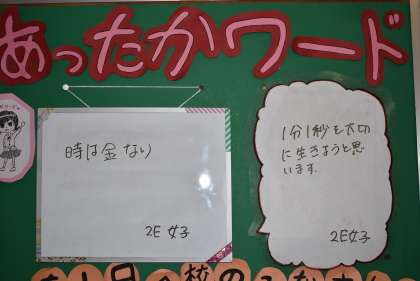 あったかワード
時は金なり
2E 女子
1分1秒を大切
に生きようと思
います。
2E女子